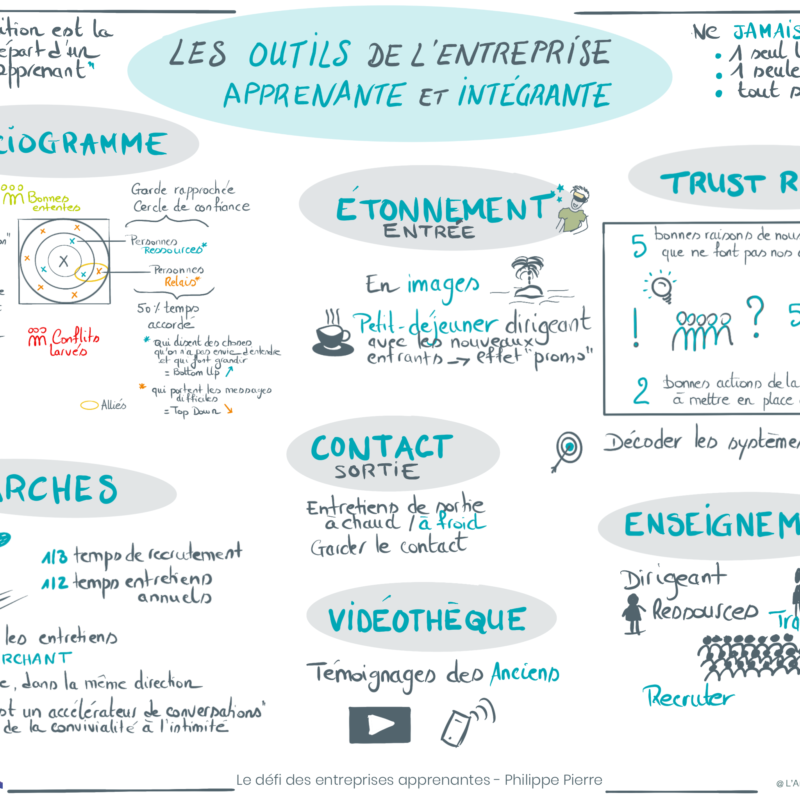 LES OUTILS DE L'ENTREPRISE
APPRENANTE ET INTÉGRANTE
ition est la
épart d'un
pprenant"
NE JAMAIS
• 1 seul
• 1 seule
• tout
CIOGRAMME
Bonnes
ententes
Garde rapprochée
Cercle de confiance
Personnes
Ressources*
Personnes
Relais*
X
50% temps
accordé
* qui disent des choses
qu'on n'a pas envie d'entendre
et qui font grandir
= Bottom Up
* qui portent les messages
difficiles
= Top Down
Conflits
larvés
Alliés
ÉTONNEMENT
ENTRÉE
En images
Petit-déjeuner dirigeant
avec les nouveaux
entrants → effet "promo"
TRUST R
5 bonnes raisons de nous
que ne font pas nos
! ? 5
2 bonnes actions de la
à mettre en place
Décoder les système
ARCHES
1/3 temps de recrutement
1/2 temps entretiens
annuels
les entretiens
RCHANT
e, dans la même direction
st un accélérateur de conversations"
de la convivialité à l'intimité
CONTACT
SORTIE
Entretiens de sortie
à chaud / à froid
Garder le contact
VIDÉOTHÈQUE
Témoignages des Anciens
ENSEIGNEM
Dirigeant
Ressources
Tra
Recruter
Le défi des entreprises apprenantes - Philippe Pierre
@ L'A